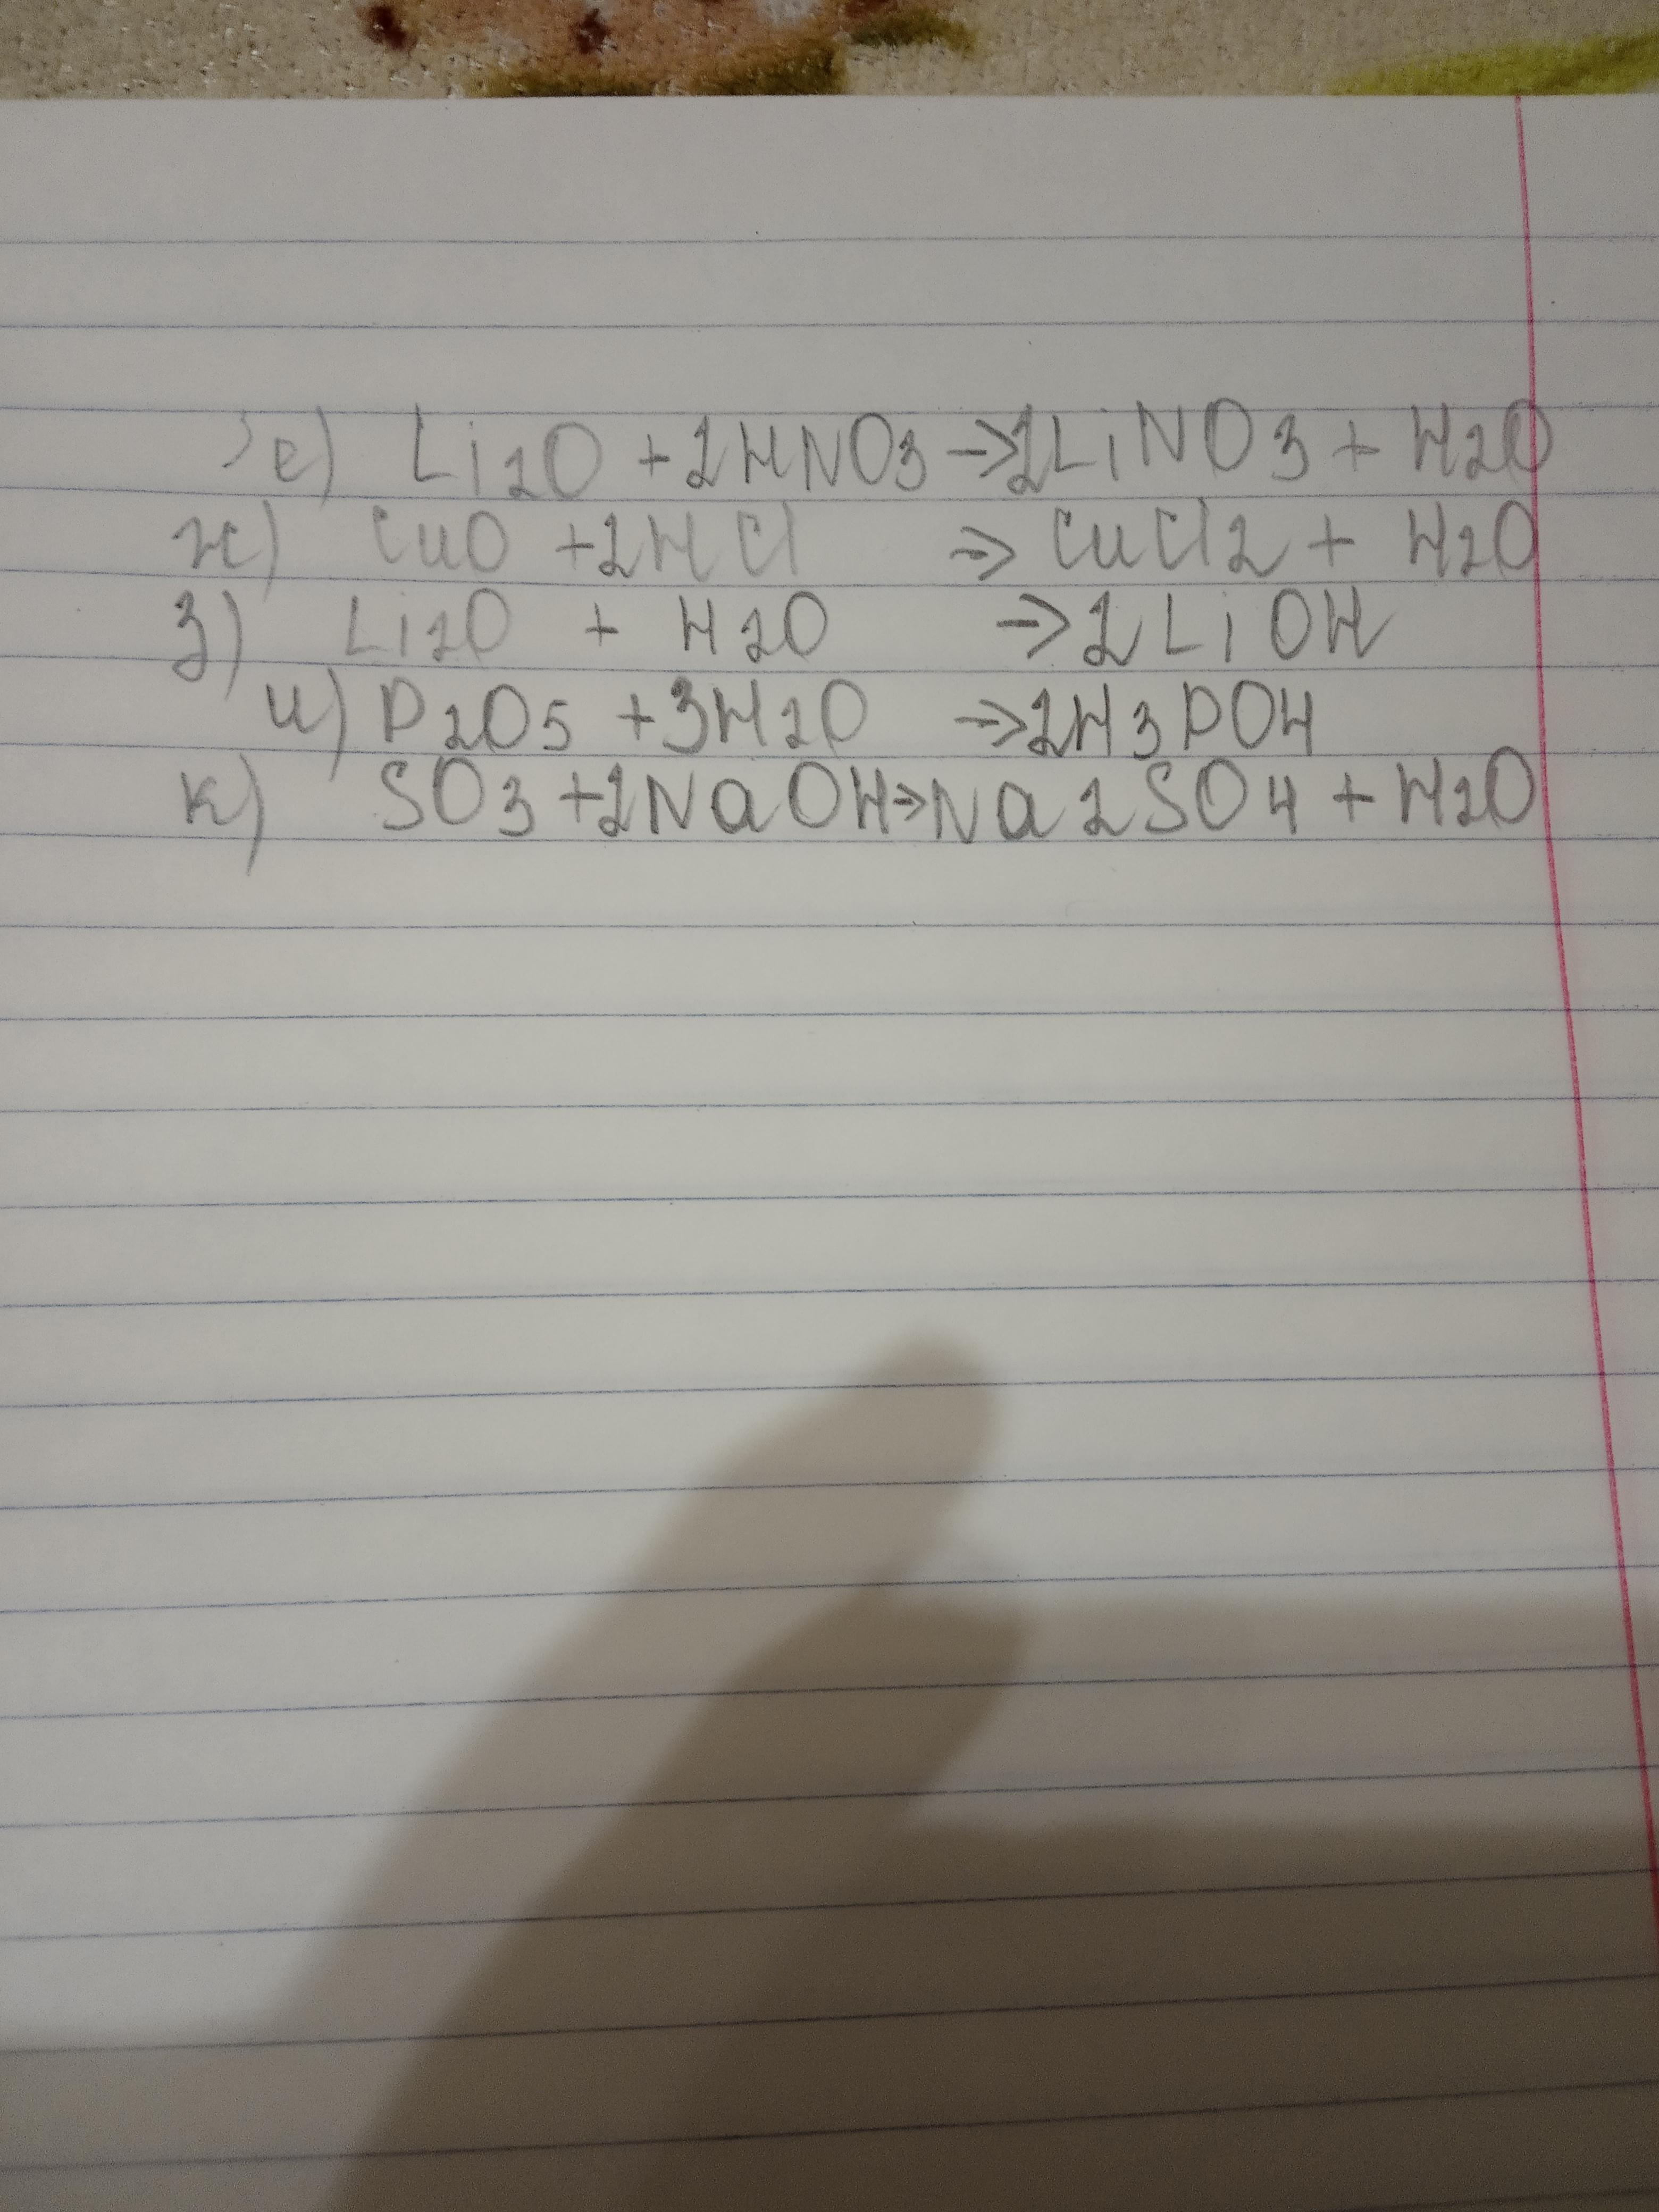 е) Li2O +2HNO3 →2LiNO3 + H2O
ж) CuO +2HCl → CuCl2 + H2O
з) Li2O + H2O → 2LiOH
и) P2O5 +3H2O →2H3PO4
к) SO3 +2NaOH→Na2SO4 + H2O